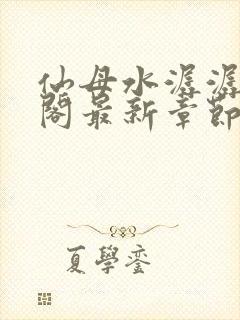 仙母水潺潺
阁最新章節
夏學銮